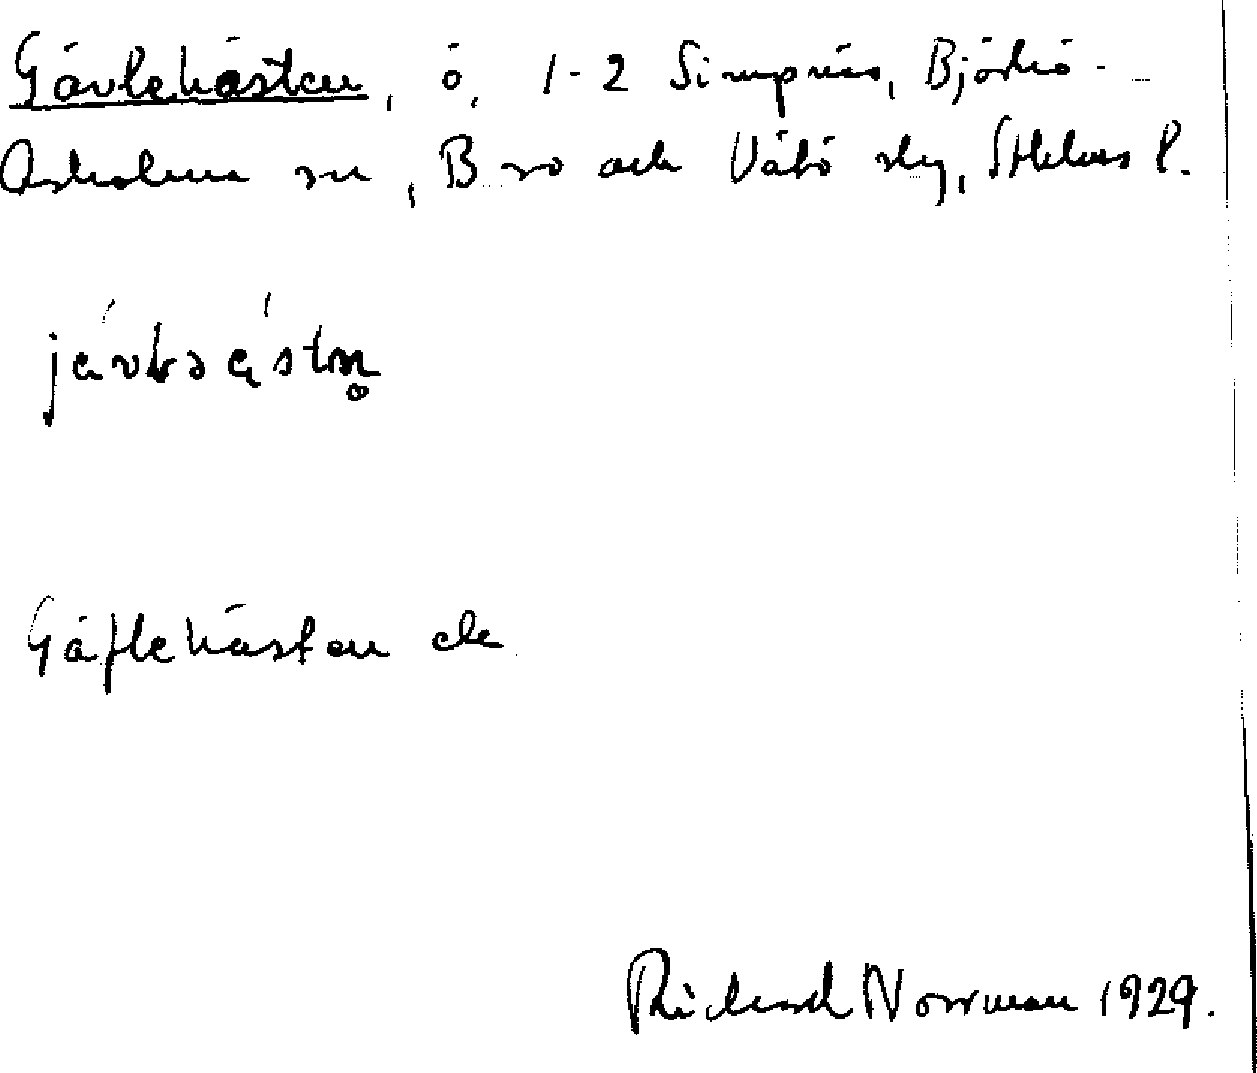 Gävlehästen, ö, 1-2 Simpnäs, Björkö-
Arholma sn, Bro och Vätö slg, Sthlms l.
Gäflehästen ek
Richard Norrman 1929.